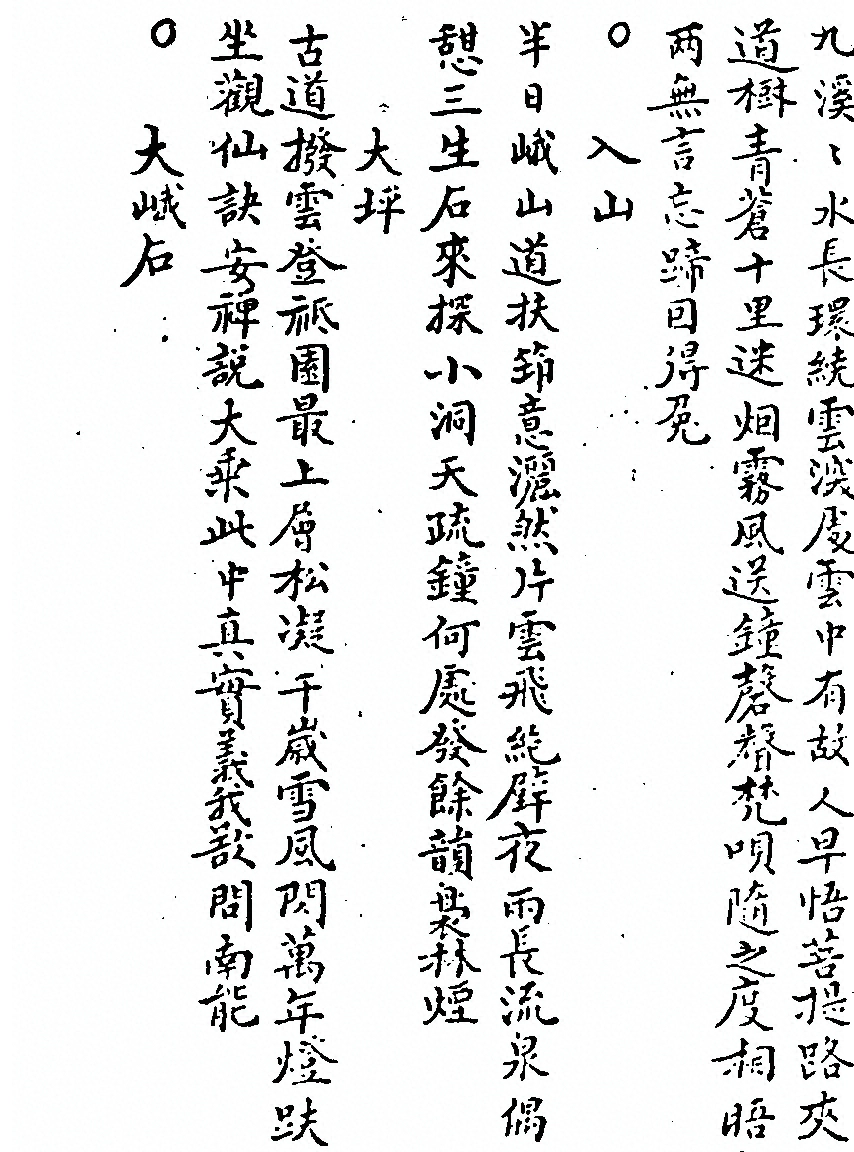 九溪〻水長環繞雲深處雲中有故人早悟菩提路夾
道樹青蒼十里迷烟霧風送鐘磬聲梵唄隨之度相晤
两無言忘蹄回得兔
○　入山
半日峨山道扶筇意灑然片雲飛絶壁夜雨長流泉偶
憩三生石來探小洞天疏鐘何處發餘韻裊林煙
大坪
古道撥雲登祇園最上層松凝千歲雪風閃萬年燈趺
坐觀仙訣安禪說大乘此中真實義我欲問南能
○　大峨石